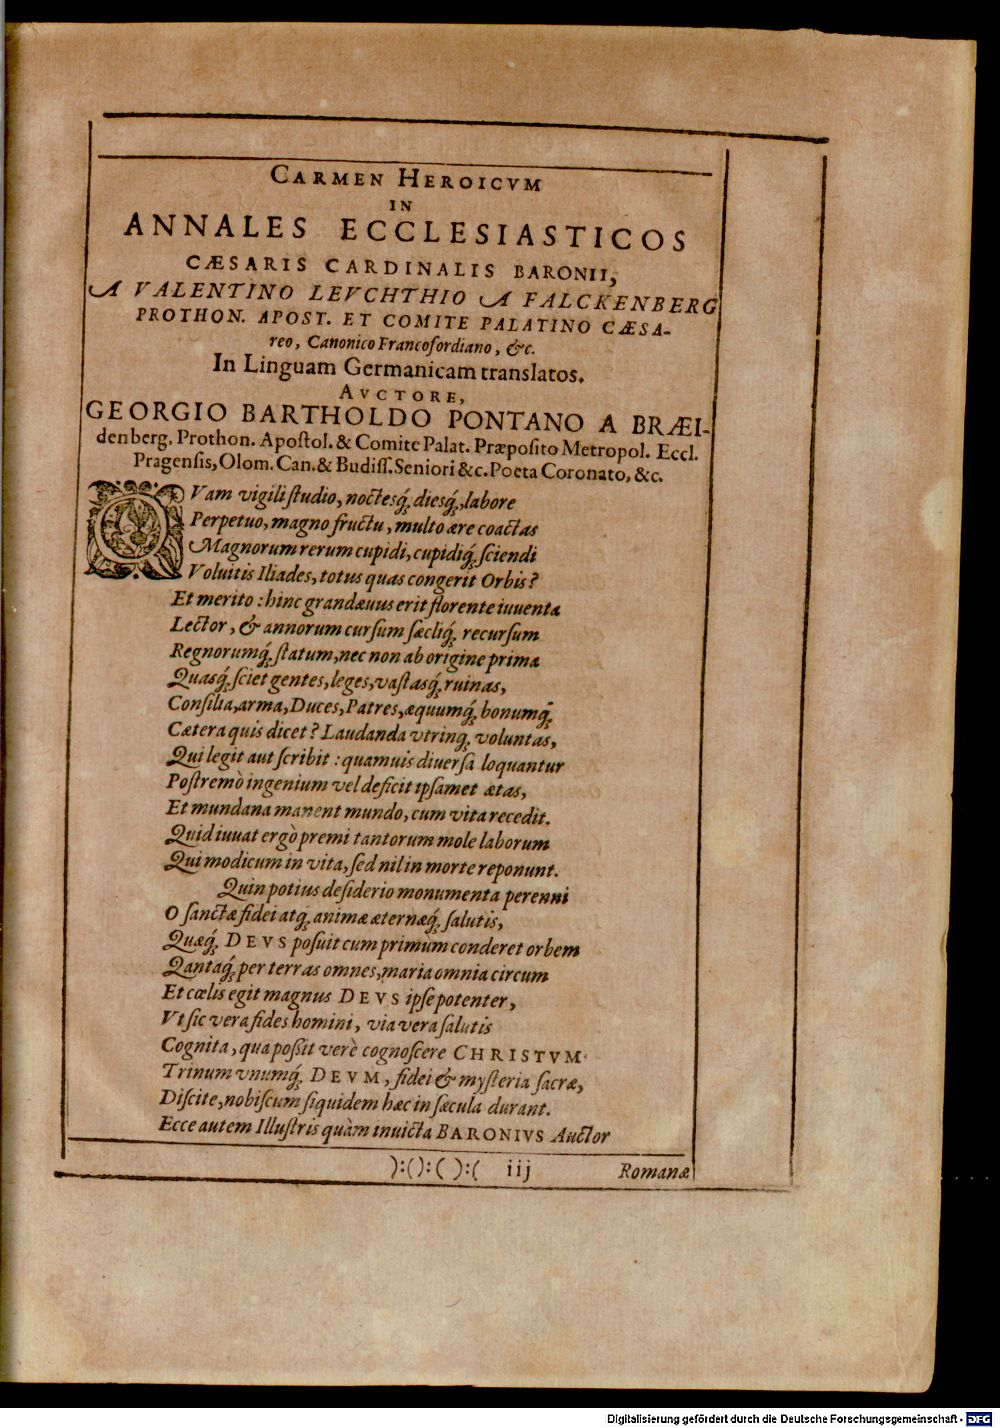 CARMEN HEROICVM
IN
ANNALES ECCLESIASTICOS
CÆSARIS CARDINALIS BARONII,
A VALENTINO LEVCHTHIO A FALCKENBERG
PROTHON. APOST. ET COMITE PALATINO CÆSA-
reo, Canonico Francofordiano, &c.
In Linguam Germanicam translatos.
AVCTORE,
GEORGIO BARTHOLDO PONTANO A BRÆI-
denberg, Prothon. Apostol. & Comite Palat. Præposito Metropol. Eccl.
Pragensis, Olom. Can. & Budiss. Seniori &c. Poeta Coronato, &c.
QVam vigili studio, noctesq́; diesq́;, labore
Perpetuo, magno fructu, multo ære coactas
Magnorum rerum cupidi, cupidiq́; sciendi
Voluitis Iliades, totus quas congerit Orbis?
Et merito: hinc grandæuus erit florente iuuenta
Lector, & annorum cursum sæcliq́; recursum
Regnorumq́; statum, nec non ab origine prima
Quasq́; sciet gentes, leges, vastasq́; ruinas,
Consilia, arma, Duces, Patres, æquumq́; bonumq́;
Cætera quis dicet? Laudanda vtrinq; voluntas,
Qui legit aut scribit: quamuis diuersa loquantur
Postremò ingenium vel deficit ipsamet ætas,
Et mundana manent mundo, cum vita recedit.
Quid iuuat ergò premi tantorum mole laborum
Qui modicum in vita, sed nil in morte reponunt.
Quin potius desiderio monumenta perenni
O sanctæ fidei atq; animæ æternæq́; salutis,
Quæq́; DEVS posuit cum primum conderet orbem
Qantaq́; per terras omnes, maria omnia circum
Et cælis egit magnus DEVS ipse potenter,
Vt sic vera fides homini, via vera salutis
Cognita, qua possit verè cognoscere CHRISTVM
Trinum vnumq́; DEVM, fidei & mysteria sacræ,
Discite, nobiscum siquidem hæc in sæcula durant.
Ecce autem Illustris quàm inuicta BARONIVS Auctor
):():( ):( iij Romanæ
Digitalisierung gefördert durch die Deutsche Forschungsgemeinschaft - DFG